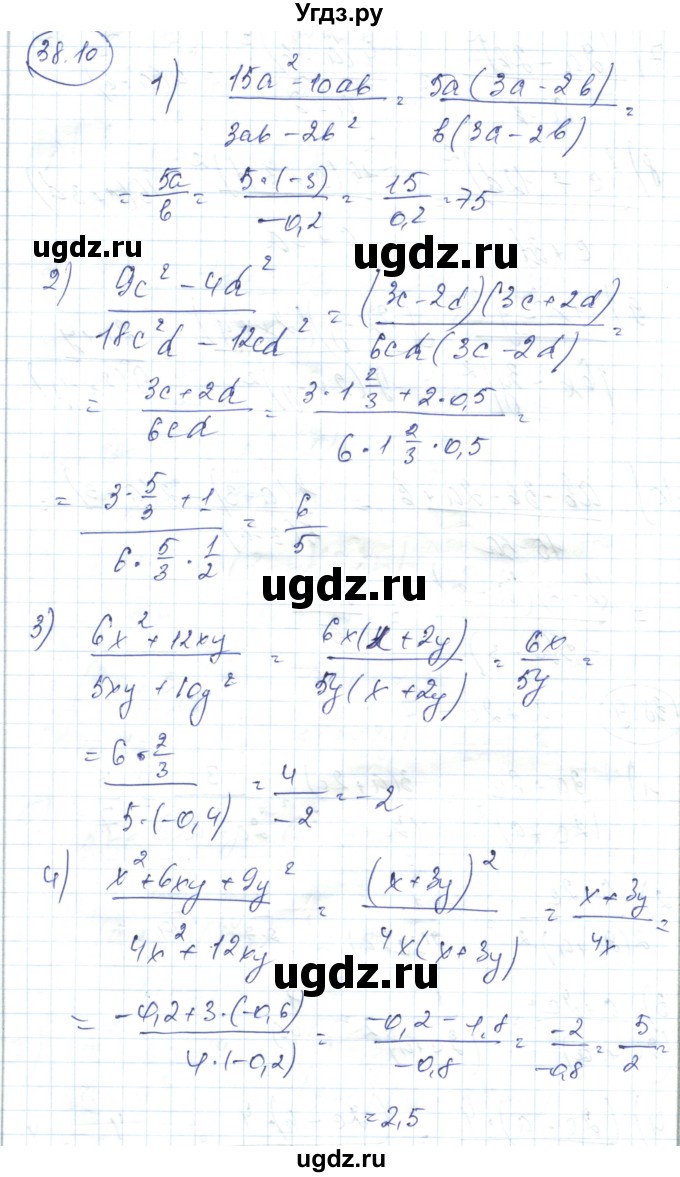 Угдз.ру
38.10
1) (15a² - 10ab)/(3ab - 2b²) = 5a(3a - 2b)/b(3a - 2b) =
= 5a/b = 5·(-3)/-0,2 = 15/0,2 = 75
ugdz.ru ugdz.ru
2) (9c² - 4d²)/(18c²d - 12cd²) = (3c-2d)(3c+2d)/6cd(3c-2d) =
= (3c+2d)/6cd = (3·1 2/3 + 2·0,5)/(6·1 2/3·0,5) =
= (3·5/3 + 1)/(6·5/3·1/2) = 6/5
ugdz.ru
3) (6x² + 12xy)/(5xy + 10y²) = 6x(x + 2y)/5y(x + 2y) = 6x/5y =
= 6·2/3/5·(-0,4) = 4/-2 = -2
4) (x² + 6xy + 9y²)/(4x² + 12xy) = (x + 3y)²/4x(x + 3y) = (x + 3y)/4x =
ugdz.ru
= (-0,2 + 3·(-0,6))/4·(-0,2) = (-0,2 - 1,8)/-0,8 = -2/-0,8 = 5/2 =
= 2,5
ugdz.ru
ugdz.ru